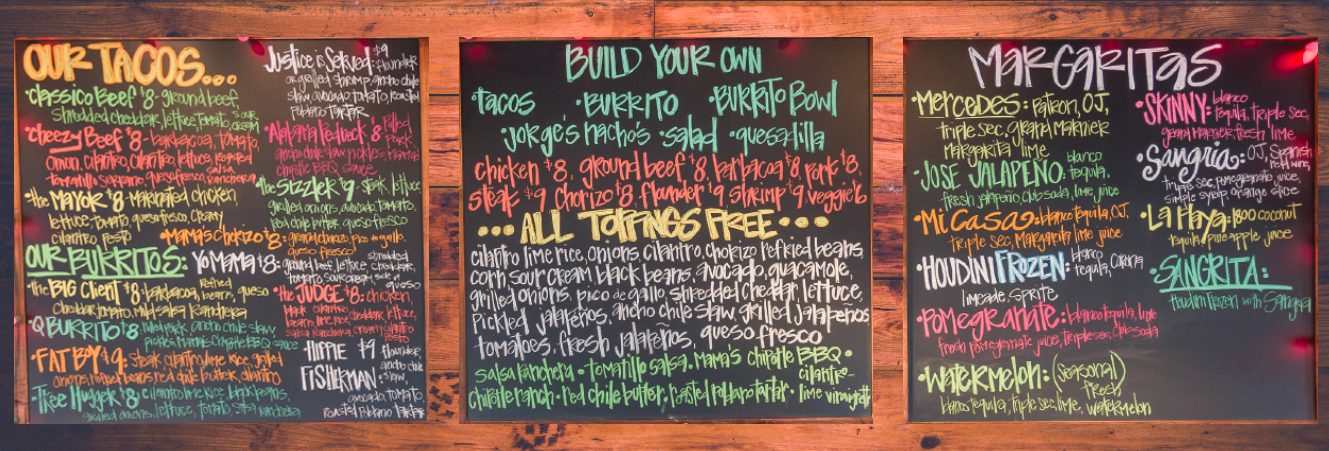 OUR TACOS...
•Classico Beef $8- ground beef,
shredded cheddar, lettuce, tomato, sour cream
•Cheezy Beef $8- barbacoa, tomato,
onion, cilantro, cilantro, lettuce, roasted
tomatillo serrano queso fresco, ranchera salsa
•the MAYOR $8 marinated chicken,
lettuce, tomato, queso fresco, creamy
cilantro pesto
•Mama's Chorizo $8: ground chorizo, pico de gallo,
queso fresco
Justice is Served: $9 flounder
or grilled shrimp, ancho chile
slaw, avocado, tomato, roasted
poblano tartar
Alabama Redneck $8 pulled
pork,
ancho chile slaw, pickles, mama's
chipotle BBQ sauce
•the Sizzler $9 steak, lettuce
grilled onions, avocado, tomato,
red chile butter, queso fresco
OUR BURRITOS:
•the BIG Client $8- barbacoa, refried beans, queso
cheddar, tomato, mild salsa ranchera
QBURRITO $8 pulled pork, ancho chile slaw,
pickles, Mama's Chipotle BBQ sauce
•FAT BOY $9: steak, cilantro lime rice, grilled
onions, refried beans, red chile butter, cilantro
•Tree Hugger $8: cilantro lime rice, black beans,
grilled onions, lettuce, tomato, salsa ranchera
YO MAMA $8: ground beef, lettuce, shredded cheddar,
tomato, sour cream, queso
•the JUDGE $8: chicken,
black cilantro cheddar, lettuce,
beans, lime rice,
salsa ranchera, creamy cilantro pesto
HIPPIE $9 flounder,
FISHERMAN: ancho chile slaw,
avocado, tomato,
Roasted Poblano Tartar
BUILD YOUR OWN
•tacos •BURRITO •BURRITO Bowl
•jorge's nacho's •salad •quesadilla
chicken $8, ground beef $8, barbacoa $8, pork $8,
steak $9 chorizo $8, flounder $9 shrimp $9, veggie $6
...ALL TOPPINGS FREE...
cilantro lime rice, onions, cilantro, chorizo refried beans,
corn, sour cream, black beans, avocado, guacamole,
grilled onions, pico de gallo, shredded cheddar, lettuce,
pickled jalapeños, ancho chile slaw, grilled jalapeños
tomatoes, fresh jalapeños, queso fresco
salsa ranchera • tomatillo salsa, Mama's chipotle BBQ •
cilantro-
chipotle ranch • red chile butter, roasted poblano tartar • lime vinaigrette
MARGARITAS
•MERCEDES: Patron, OJ,
triple sec, grand marnier
Margarita lime
•JOSE JALAPEÑO: blanco
tequila,
fresh jalapeño, club soda, lime juice
•Mi Casa: blanco tequila, OJ,
triple sec, Margarita lime juice
•HOUDINI FROZEN: blanco
tequila, Corona
limeade, sprite
•POMEGRANATE: blanco tequila, lime
fresh pomegranate juice, triple sec, club soda
•WATERMELON: (seasonal)
fresh
blanco tequila, triple sec, lime, watermelon
•SKINNY: blanco
tequila, triple sec,
grand marnier, fresh lime
•Sangria: OJ, Spanish
red wine,
triple sec, pomegranate juice,
simple syrup, orange slice
•LA Playa: 1800 coconut
tequila, pineapple juice
•SANGRITA:
houdini frozen with Sangria